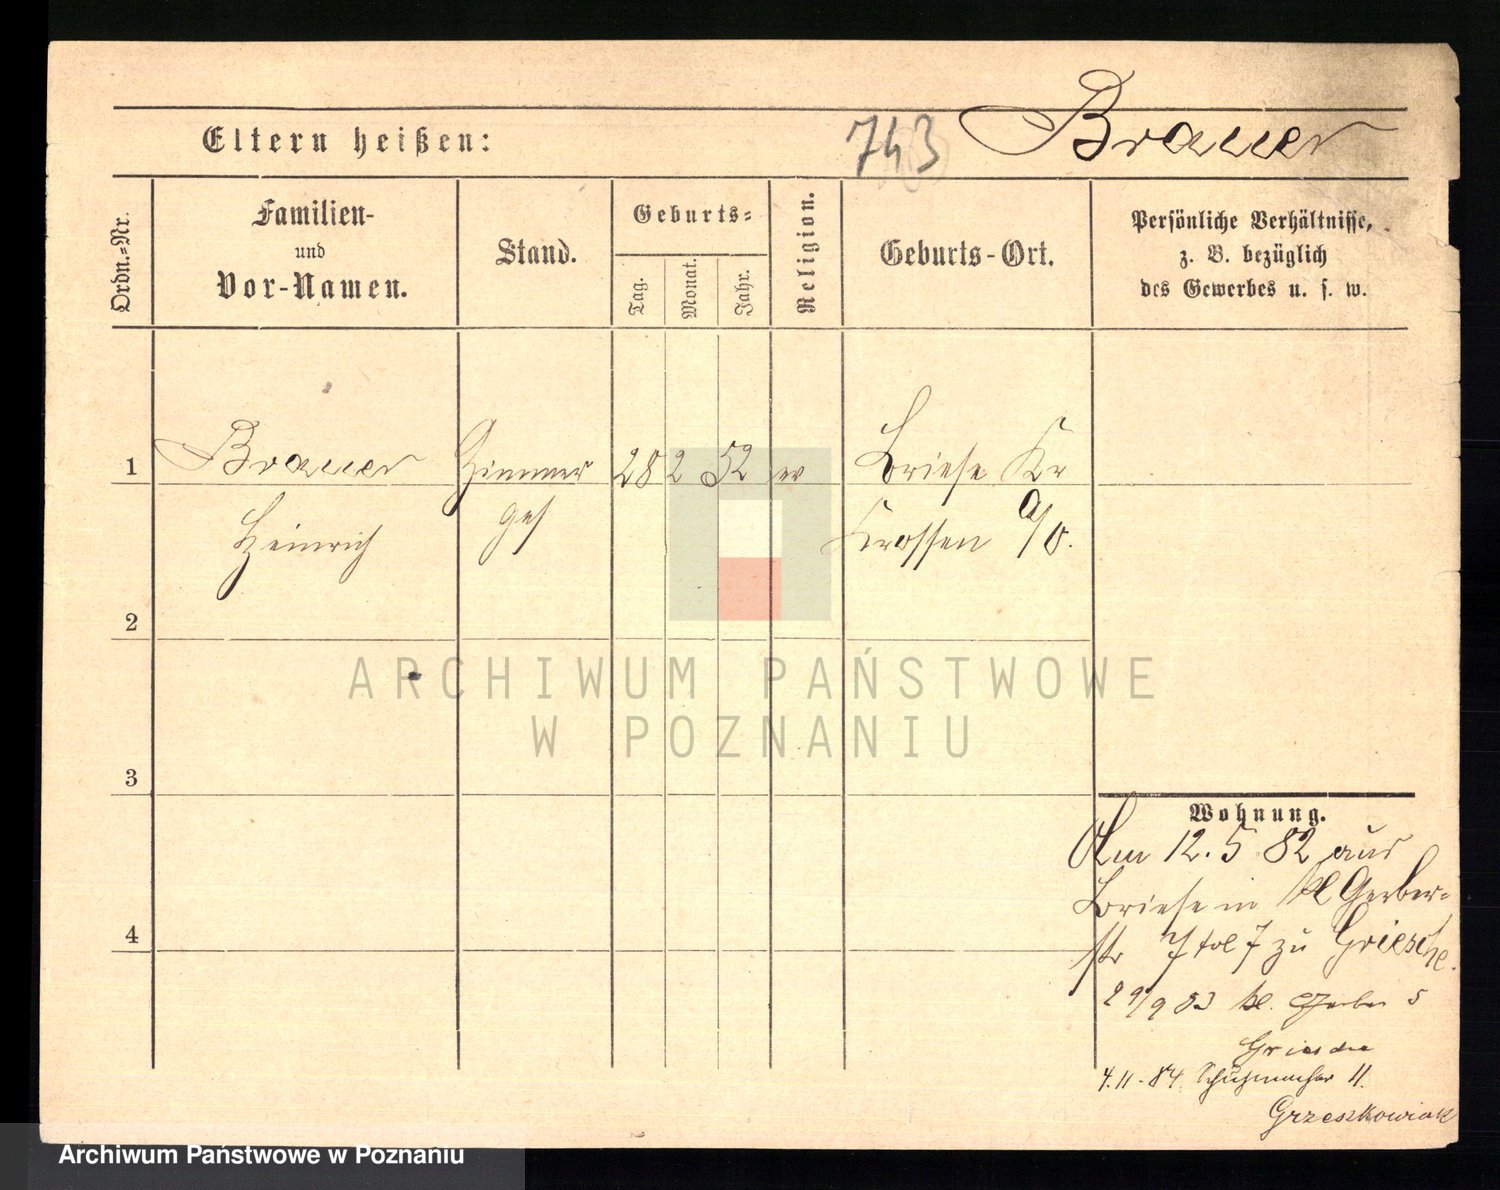 Brauer
Eltern heißen:
743
Ordn.-Nr.
Familien-
und
Vor-Namen.
Stand.
Geburts-
Tag.
Monat.
Jahr.
Religion.
Geburts-Ort.
Persönliche Verhältnisse,
z. B. bezüglich
des Gewerbes u. s. w.
1
Brauer Zimmer 28 2 52 ev Briese Kr
Heinrich ges Krossen a/O.
2
3
4
ARCHIWUM PAŃSTWOWE
W POZNANIU
Wohnung.
Am 12. 5 82 aus
Briese in kl Gerber-
str 7 fol 7 zu Griesche.
29/9 83 kl. Gerber 5
Griesche
4.11.84. Schuhmacher 11.
Grzeszkowiak
Archiwum Państwowe w Poznaniu